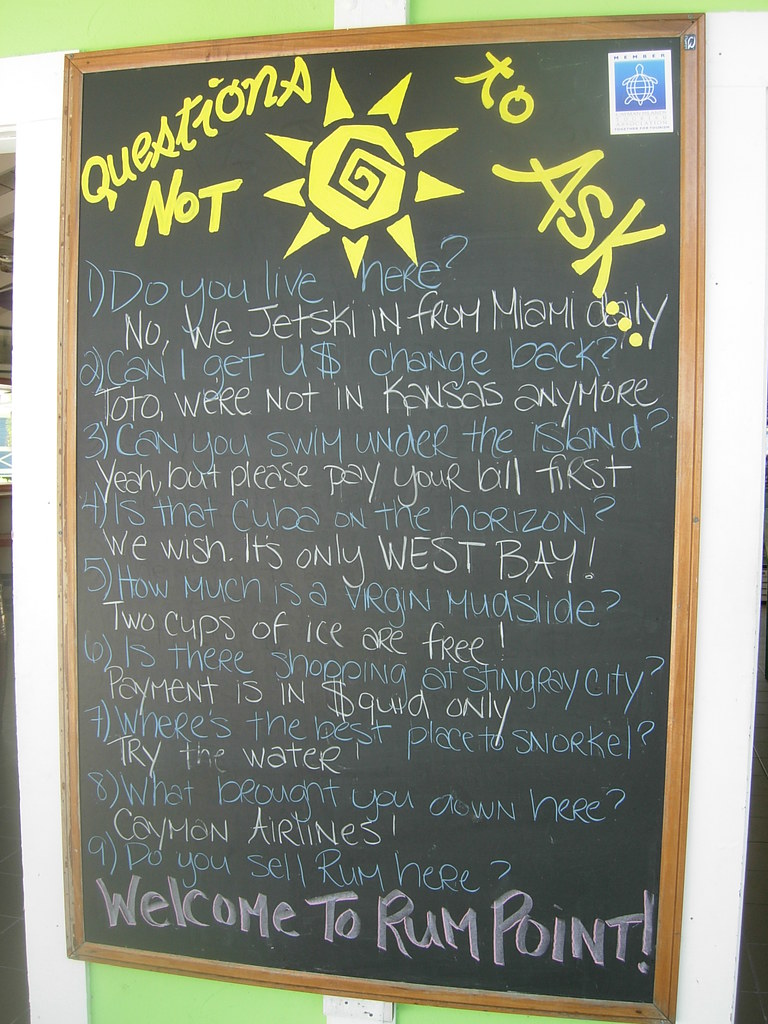 Questions
Not
to
Ask...
MEMBER
1) Do you live here?
No, We Jetski in from Miami daily
2) Can I get U$ change back?
Toto, we're not in Kansas anymore
3) Can you swim under the island?
Yeah, but please pay your bill first
4) Is that Cuba on the horizon?
We wish. It's only WEST BAY!
5) How much is a Virgin Mudslide?
Two cups of ice are free!
6) Is there shopping at Stingray City?
Payment is in $quid only
7) Where's the best place to snorkel?
Try the water!
8) What brought you down here?
Cayman Airlines!
9) Do you sell Rum here?
Welcome To Rum Point!